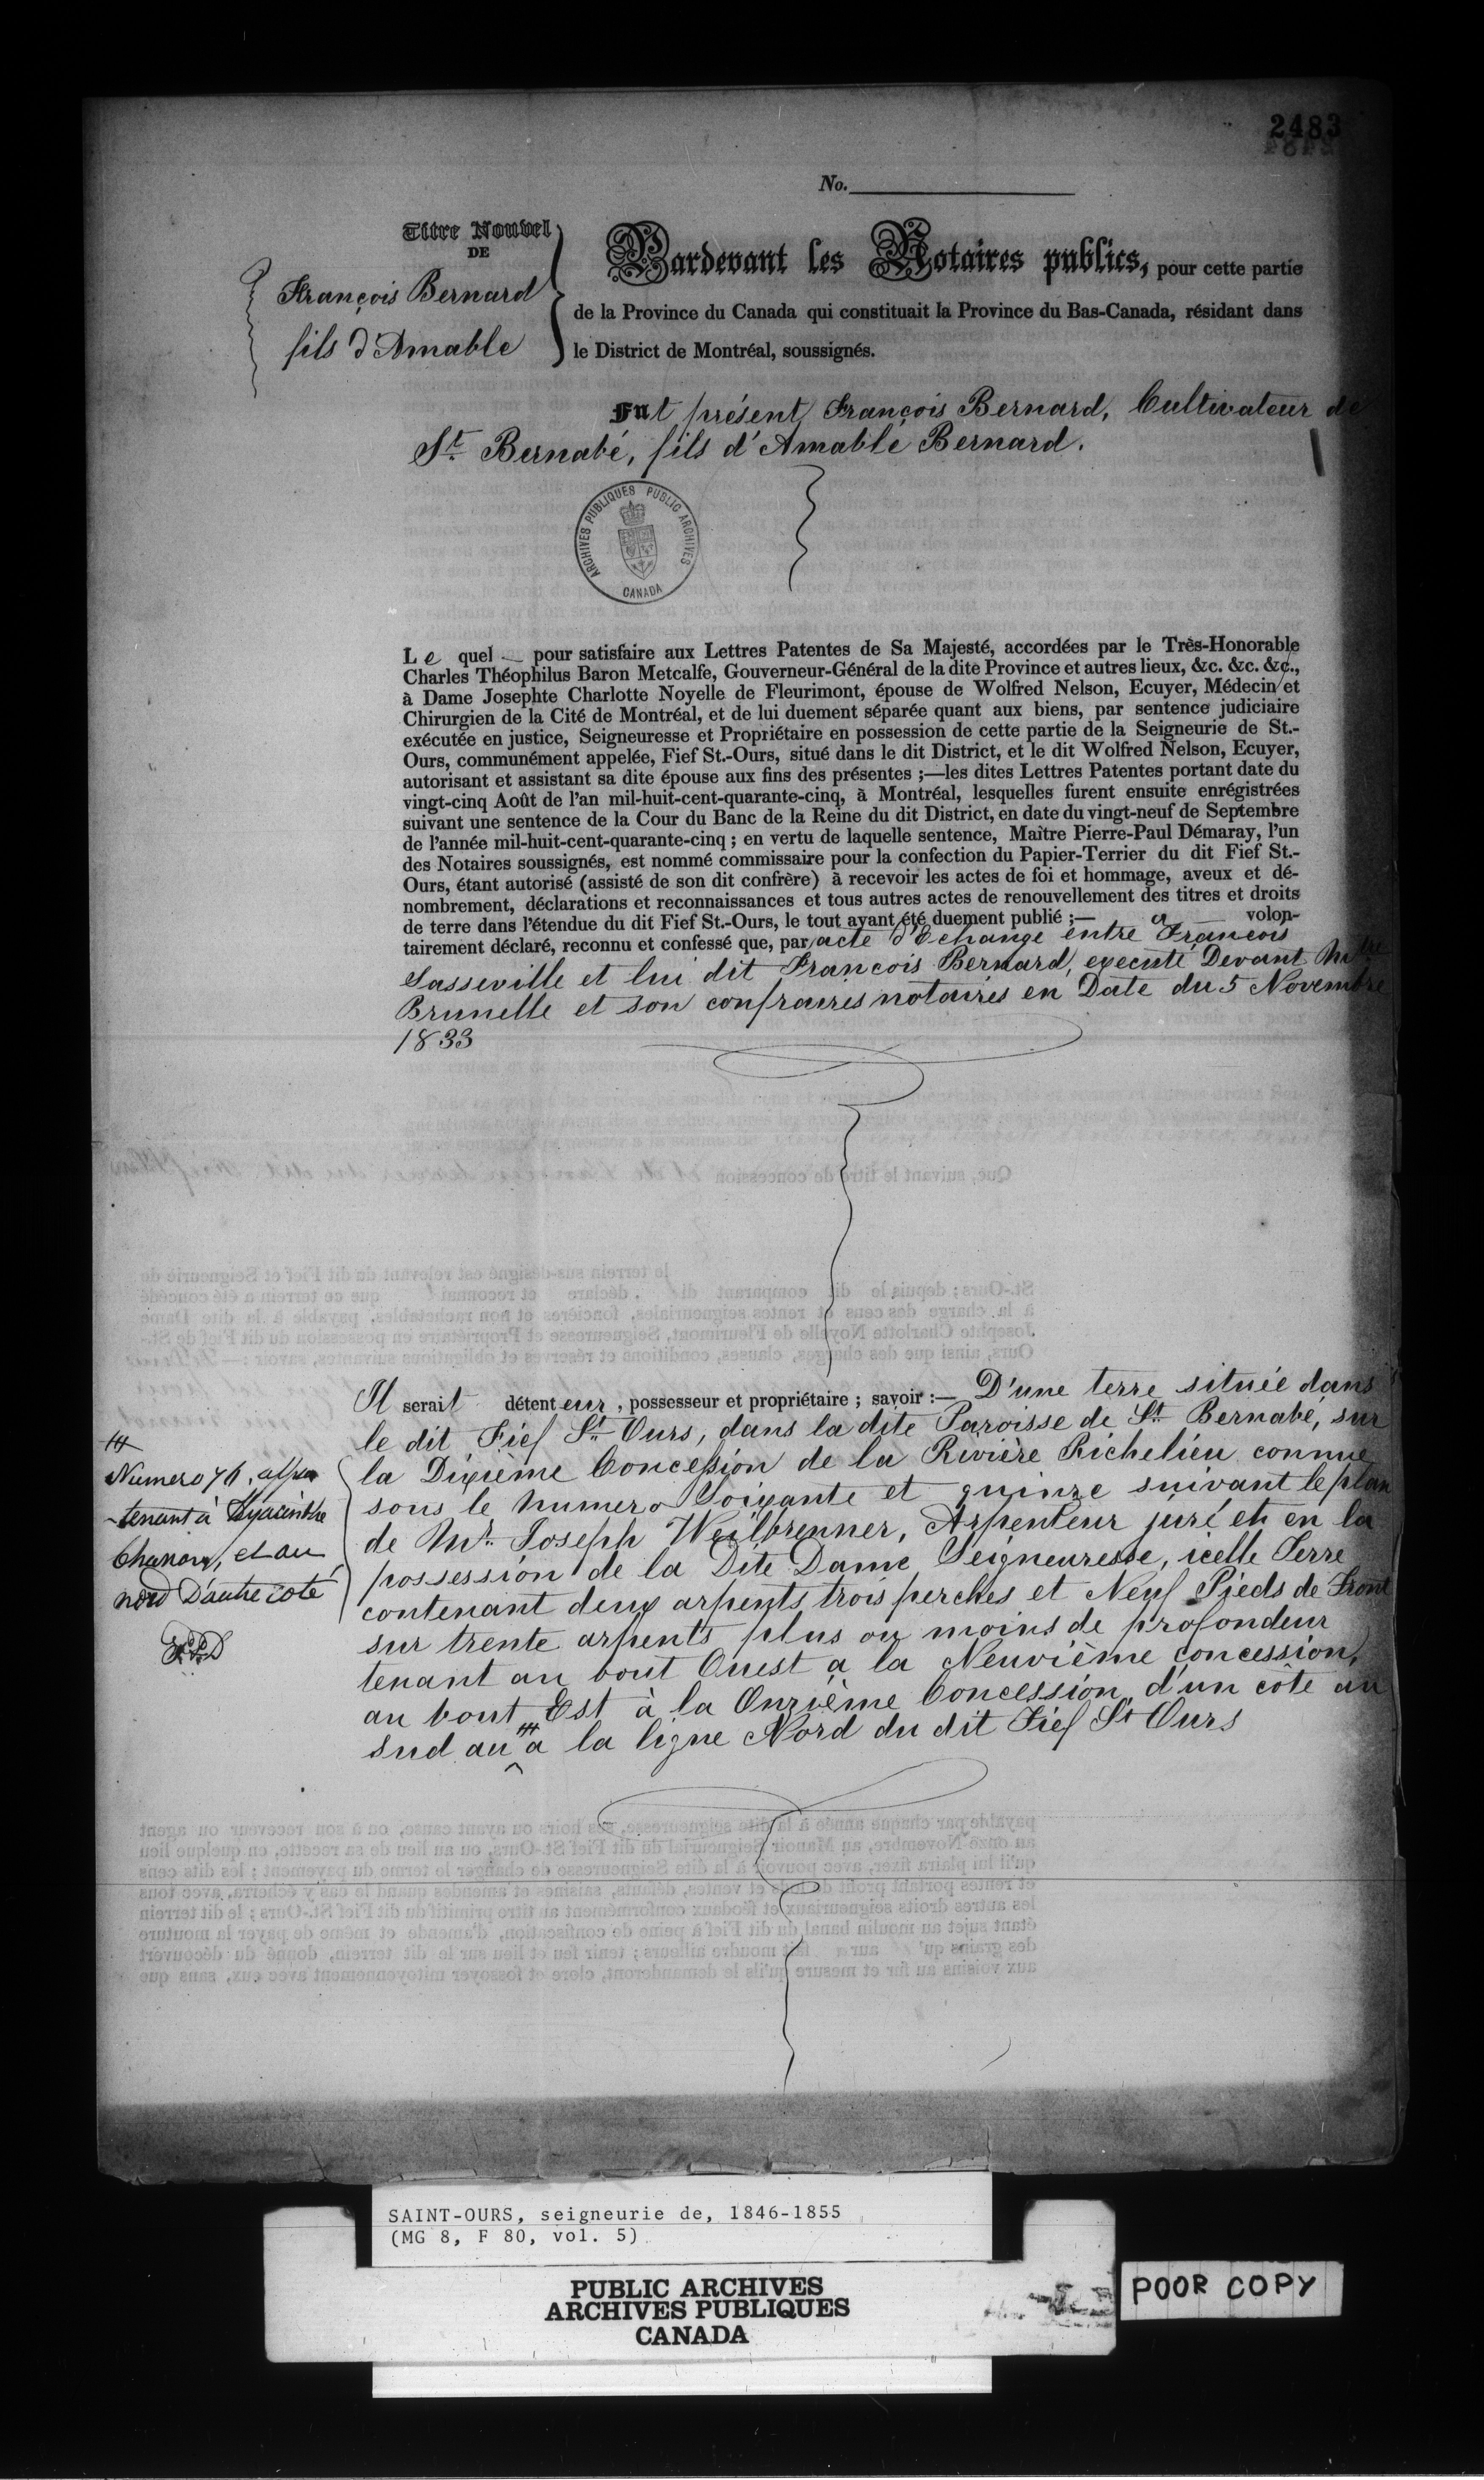 2483
No.
Titre Nouvel
DE
François Bernard
fils d'Amable
Pardevant les Notaires publics, pour cette partie
de la Province du Canada qui constituait la Province du Bas-Canada, résidant dans
le District de Montréal, soussignés.
Fut présent François Bernard, Cultivateur de
St. Bernabé, fils d'Amable Bernard.
ARCHIVES PUBLIQUES PUBLIC ARCHIVES
CANADA
Le quel pour satisfaire aux Lettres Patentes de Sa Majesté, accordées par le Très-Honorable
Charles Théophilus Baron Metcalfe, Gouverneur-Général de la dite Province et autres lieux, &c. &c. &c.,
à Dame Josephte Charlotte Noyelle de Fleurimont, épouse de Wolfred Nelson, Ecuyer, Médecin et
Chirurgien de la Cité de Montréal, et de lui duement séparée quant aux biens, par sentence judiciaire
exécutée en justice, Seigneuresse et Propriétaire en possession de cette partie de la Seigneurie de St.-
Ours, communément appelée, Fief St.-Ours, situé dans le dit District, et le dit Wolfred Nelson, Ecuyer,
autorisant et assistant sa dite épouse aux fins des présentes ;—les dites Lettres Patentes portant date du
vingt-cinq Août de l'an mil-huit-cent-quarante-cinq, à Montréal, lesquelles furent ensuite enrégistrées
suivant une sentence de la Cour du Banc de la Reine du dit District, en date du vingt-neuf de Septembre
de l'année mil-huit-cent-quarante-cinq ; en vertu de laquelle sentence, Maître Pierre-Paul Démaray, l'un
des Notaires soussignés, est nommé commissaire pour la confection du Papier-Terrier du dit Fief St.-
Ours, étant autorisé (assisté de son dit confrère) à recevoir les actes de foi et hommage, aveux et dé-
nombrement, déclarations et reconnaissances et tous autres actes de renouvellement des titres et droits
de terre dans l'étendue du dit Fief St.-Ours, le tout ayant été duement publié ;— a volon-
tairement déclaré, reconnu et confessé que, par acte d'Echange entre François
Sasseville et lui dit François Bernard, executé Devant Mtre
Brunelle et son confraires notaires en Date du 5 Novembre
1833
Il serait détenteur, possesseur et propriétaire ; savoir :— D'une terre située dans
le dit Fief St. Ours, dans la dite Paroisse de St. Bernabé, sur
la Dixième Concession de la Rivière Richelieu connue
sous le numero Soixante et quinze suivant le plan
de Mr. Joseph Weilbrenner, Arpenteur juré et en la
possession de la Dite Dame Seigneuresse, icelle Terre
contenant deux arpents trois perches et Neuf Pieds de Front
sur trente arpents plus ou moins de profondeur
tenant au bout Ouest a la Neuvième concession,
au bout Est à la Onzième Concession, d'un côté au
Sud au # a la ligne Nord du dit Fief St Ours
#
Numero 76, appar
-tenant à Hyacinthe
et au
nord D'autre coté
SAINT-OURS, seigneurie de, 1846-1855
(MG 8, F 80, vol. 5)
PUBLIC ARCHIVES
ARCHIVES PUBLIQUES
CANADA
POOR COPY